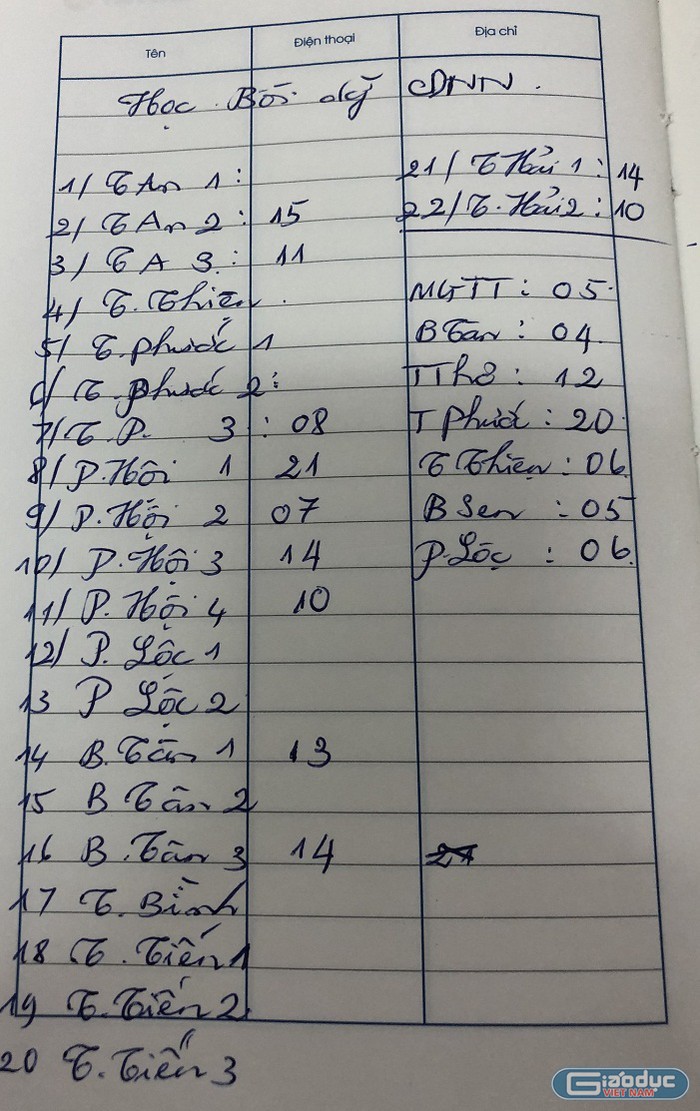 Tên Điện thoại Địa chỉ
Học Bồi dưỡng CDNN.
1/ T An 1:
2/ T An 2: 15
3/ T A 3: 11
4/ T. Thiện.
5/ T. phước 1
6/ T. phước 2:
7/ T. P. 3: 08
8/ P. Hội 1 21
9/ P. Hội 2 07
10/ P. Hội 3 14
11/ P. Hội 4 10
12/ P. Lộc 1
13 P Lộc 2
14 B. Tân 1 13
15 B Tân 2
16 B. Tân 3 14
17 T. Bình
18 T. Tiến 1
19 T. Tiến 2.
20 T. Tiến 3
21/ T Hải 1: 14
22/ T. Hải 2: 10
MGTT: 05.
B Tan: 04.
TThơ: 12
T Phước: 20.
T Thiện: 06.
B Sen: 05
P. Lộc: 06.
Giáo dục
VIỆT NAM